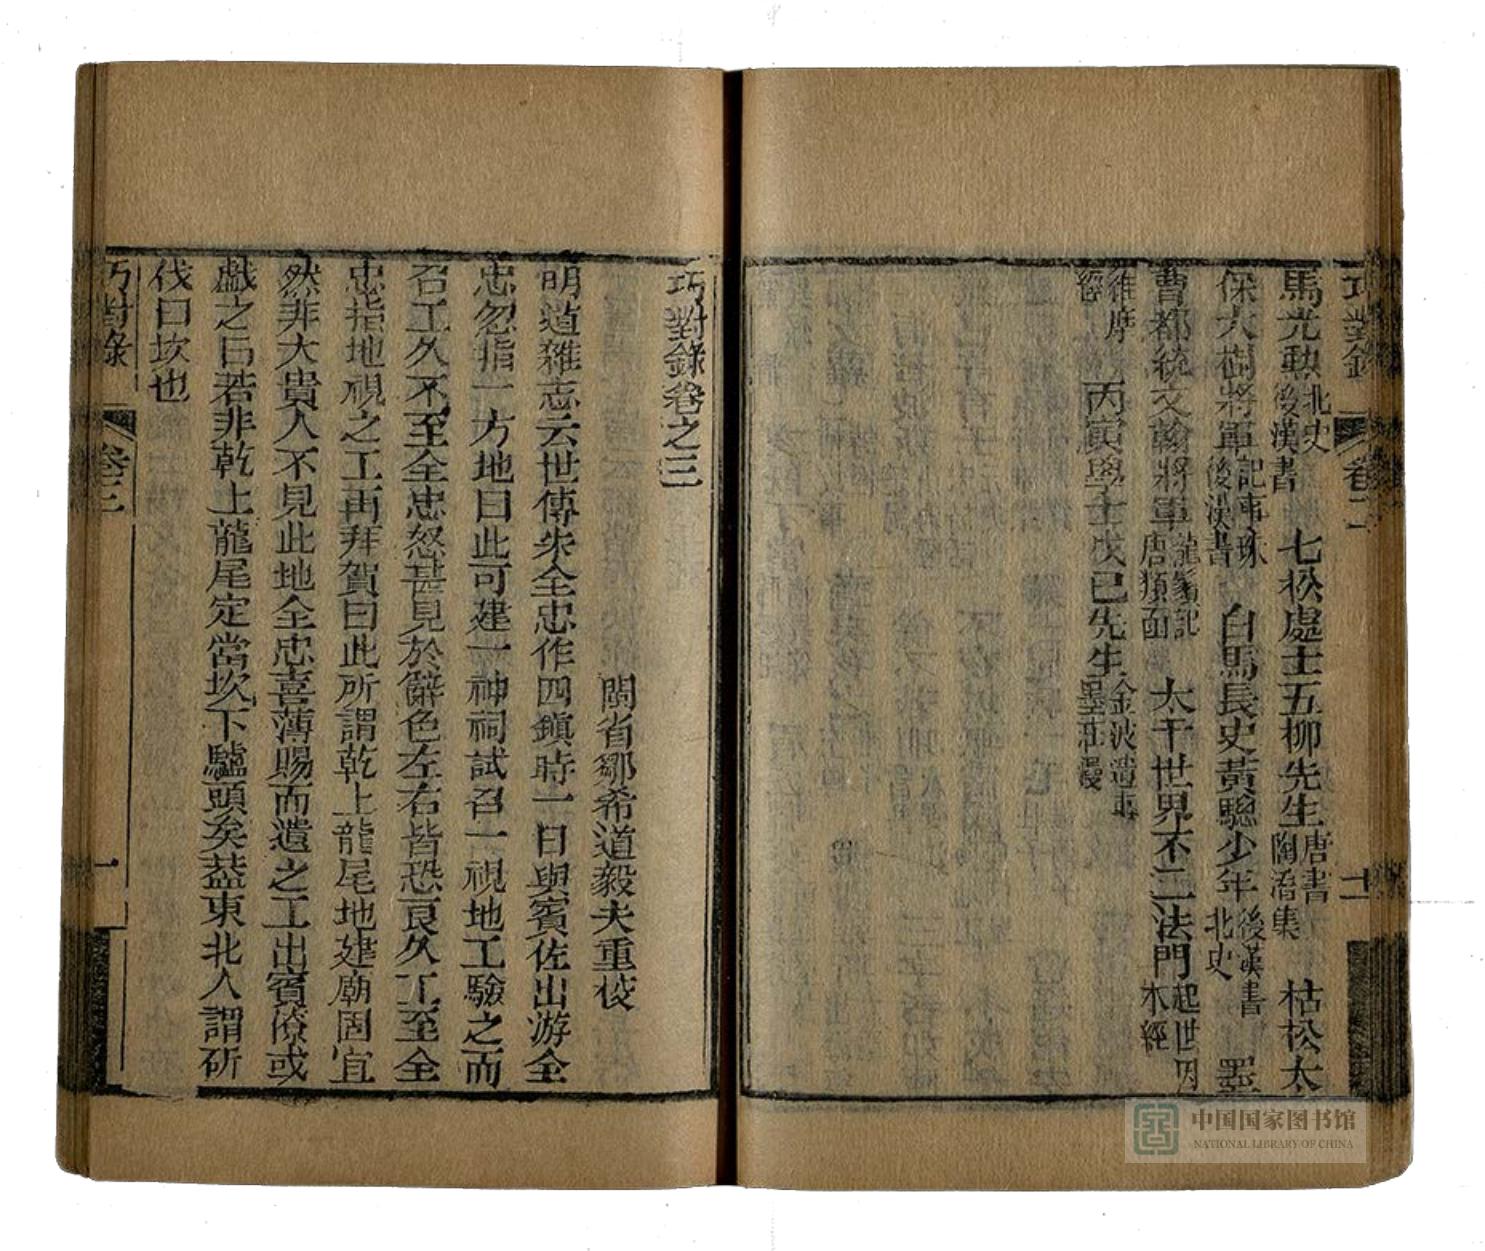 巧對錄
卷二
十一
馬光勲北史後漢書 七松處士五柳先生唐書陶淵集 枯松太
保大樹將軍後漢書 白馬長史黃驄少年後漢書北史 墨
曹都統文翰將軍龍鬚記 太千世界不二法門起世因本經
維摩經 丙寅學士戊己先生金波遺事墨莊漫
巧對錄卷之三
閩省鄒希道毅夫重校
明道雜志云世傳朱全忠作四鎮時一日與賓佐出游全
忠忽指一方地曰此可建一神祠試召一視地工驗之而
召工久不至全忠怒甚見於辭色左右皆恐良久工至全
忠指地視之工再拜賀曰此所謂乾上龍尾地建廟固宜
然非大貴人不見此地全忠喜薄賜而遣之工出賓僚或
戲之曰若非乾上龍尾定當坎下驢頭矣葢東北人謂斫
伐曰坎也
巧對錄
卷三
一
中国国家图书馆
NATIONAL LIBRARY OF CHINA